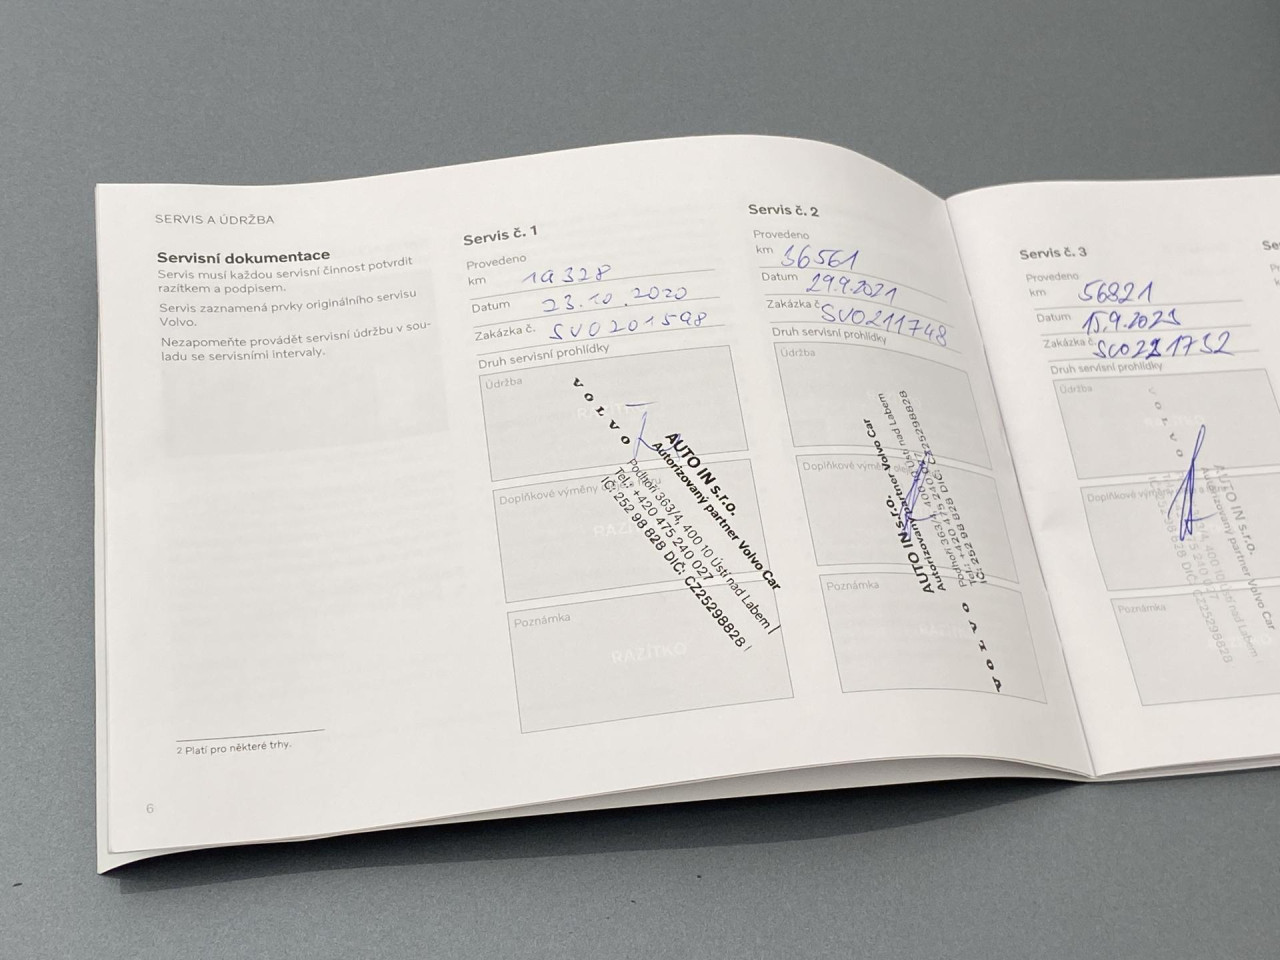 SERVIS A ÚDRŽBA
Servisní dokumentace
Servis musí každou servisní činnost potvrdit
razítkem a podpisem.
Servis zaznamená prvky originálního servisu
Volvo.
Nezapomeňte provádět servisní údržbu v sou-
ladu se servisními intervaly.
2 Platí pro některé trhy.
6
Servis č. 1
Provedeno
km 19328
Datum 23.10.2020
Zakázka č. SVO201598
Druh servisní prohlídky
Údržba
Doplňkové výměny
Poznámka
RAZÍTKO
VOLVO
AUTO IN s.r.o.
Autorizovaný partner Volvo Car
Podhoří 363/4, 400 10 Ústí nad Labem
Tel.: +420 475 240 027
IČ: 252 98 828 DIČ: CZ25298828
Servis č. 2
Provedeno
km 36561
Datum 29.9.2021
Zakázka č. SVO211748
Druh servisní prohlídky
Údržba
Doplňkové výměny
Poznámka
AUTO IN s.r.o.
Autorizovaný partner Volvo Car
Podhoří 363/4, 400 10 Ústí nad Labem
Tel.: +420 475 240 027
IČ: 252 98 828 DIČ: CZ25298828
VOLVO
Servis č. 3
Provedeno
km 56821
Datum
Zakázka č.
Druh servisní prohlídky
Údržba
Doplňkové výměny
Poznámka
VOLVO
AUTO IN s.r.o.
Autorizovaný partner Volvo Car
400 10 Ústí nad Labem
DIČ: CZ25298828